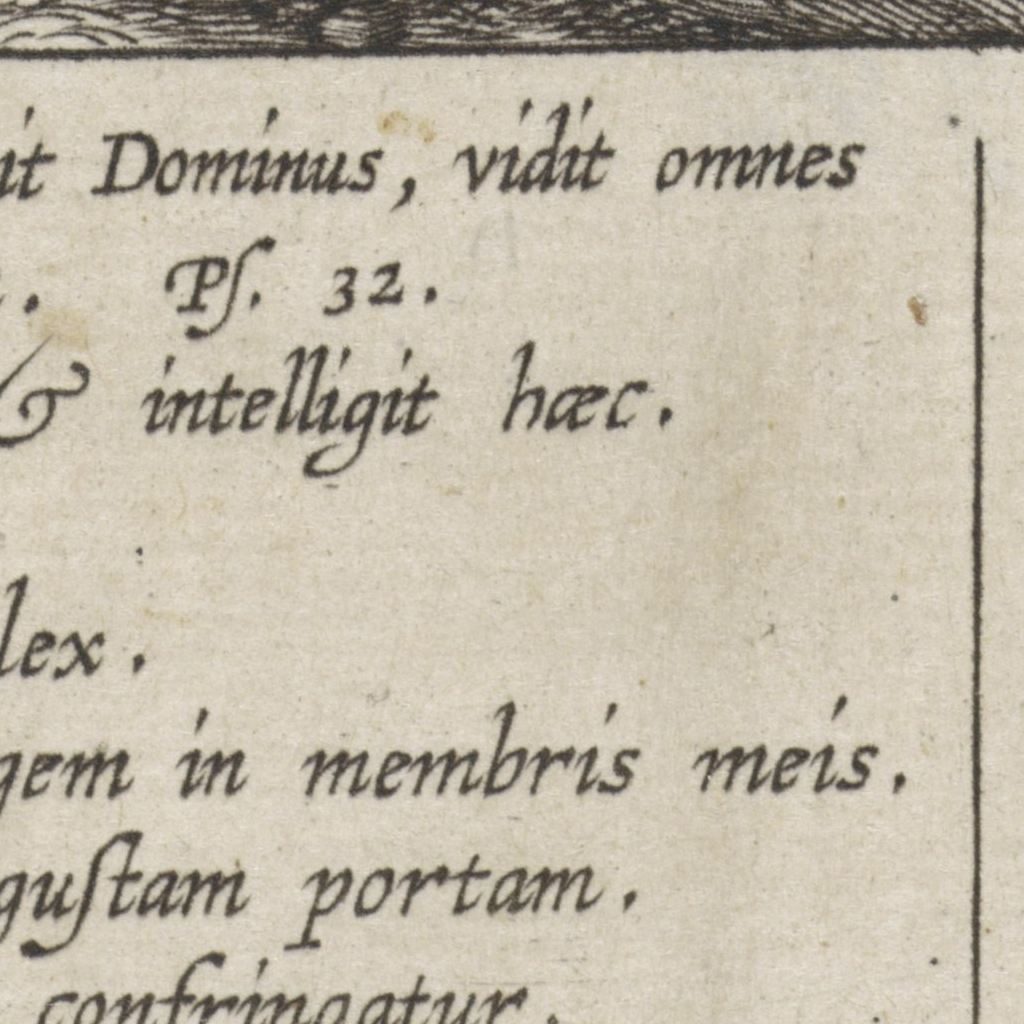 it Dominus, vidit omnes
. Pſ. 32.
& intelligit hæc.
lex.
gem in membris meis.
guſtam portam.
confringatur.